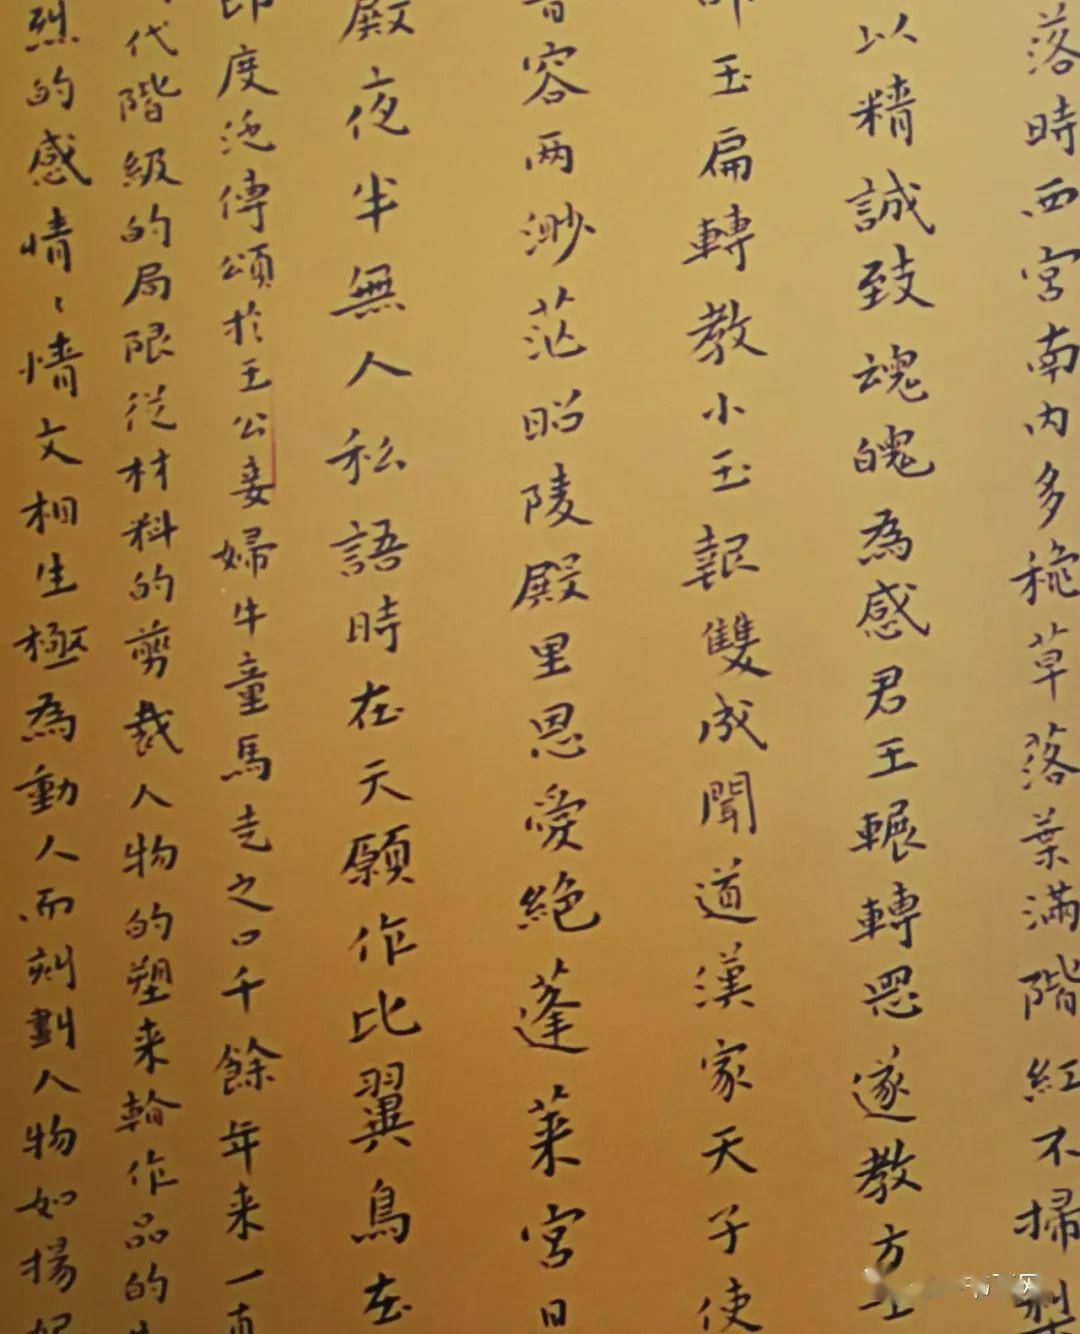 落時西宮南内多穐草落葉滿階紅不掃梨
以精誠致魂魄為感君王輾轉思遂教方士
叩玉扃轉教小玉報雙成聞道漢家天子使
音容两渺茫昭陵殿里恩愛絕蓬莱宮日
殿夜半無人私語時在天願作比翼鳥在
印度泛傳頌於王公妾婦牛童馬走之口千餘年来一直
代階級的局限從材料的剪裁人物的塑来輪作品的
烈的感情、情文相生極為動人而刻劃人物如楊妃